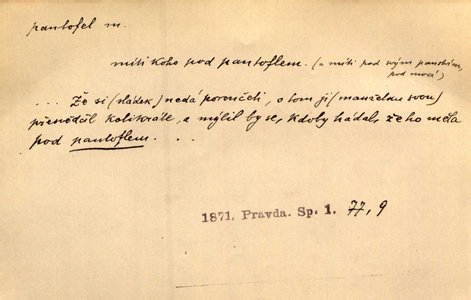 pantofel m.
míti koho pod pantoflem. (a míti pod svým panstvím,
pod mocí)
... Že si (sládek) nedá poroučeti, o tom ji (manželku svou)
přesvědčil kolikráte, a mýlil by se, kdoby hádal, že ho měla
pod pantoflem. ...
1871. Pravda. Sp. 1. 77, 9